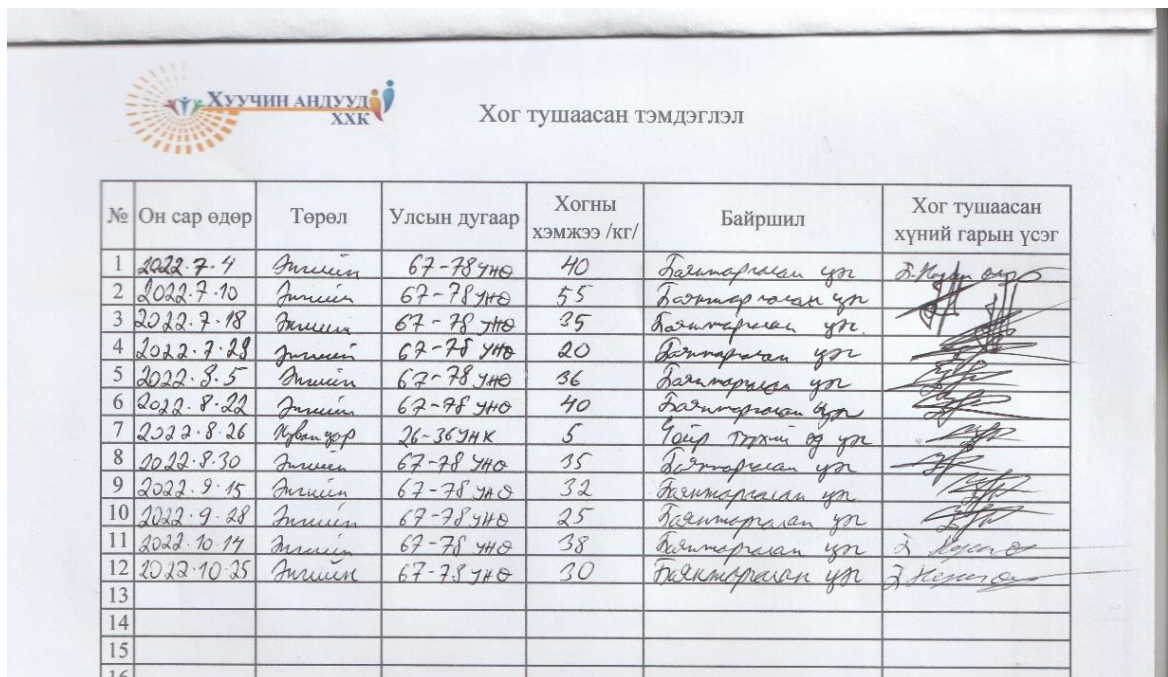 ХУУЧИН АНДУУД
ХХК
Хог тушаасан тэмдэглэл
№ Он сар өдөр Төрөл Улсын дугаар Хогны хэмжээ /кг/ Байршил Хог тушаасан хүний гарын үсэг
1 2022.7.4 Энгийн 67-78 УНӨ 40 Баянжаргалан цэг
2 2022.7.10 Энгийн 67-78 УНӨ 55 Баянжаргалан цэг
3 2022.7.18 Энгийн 67-78 УНӨ 35 Баянжаргалан цэг.
4 2022.7.29 Энгийн 67-78 УНӨ 20 Баянжаргалан цэг
5 2022.8.5 Энгийн 67-78 УНӨ 36 Баянжаргалан цэг
6 2022.8.22 Энгийн 67-78 УНӨ 40 Баянжаргалан цэг
7 2022.8.26 26-36 УНК 5 Чойр түүхий эд цэг
8 2022.8.30 Энгийн 67-78 УНӨ 35 Баянжаргалан цэг
9 2022.9.15 Энгийн 67-78 УНӨ 32 Баянжаргалан цэг
10 2022.9.28 Энгийн 67-78 УНӨ 25 Баянжаргалан цэг
11 2022.10.14 Энгийн 67-78 УНӨ 38 Баянжаргалан цэг
12 2022.10.25 Энгийн 67-78 УНӨ 30 Баянжаргалан цэг
13
14
15
16